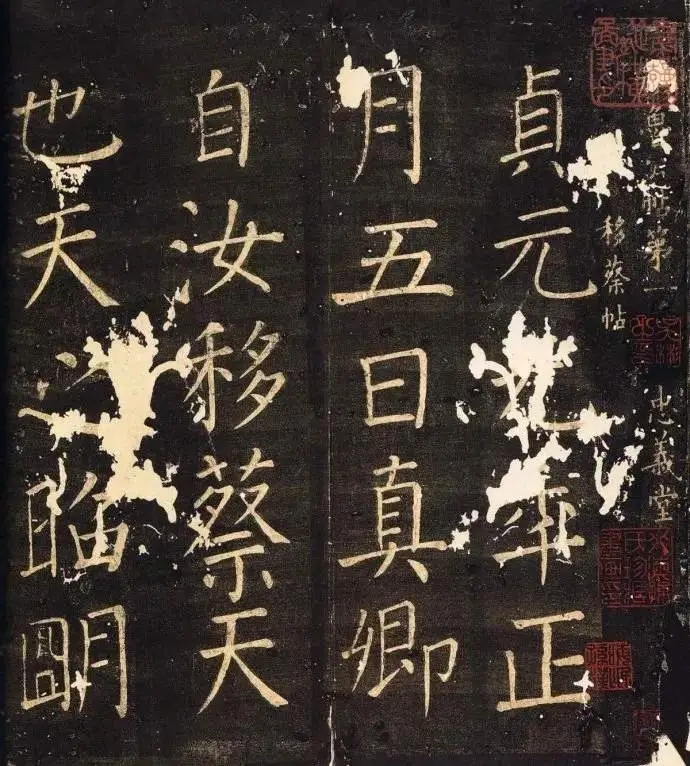 魯公帖第一 忠義堂
移蔡帖
貞元年正
月五日真卿
自汝移蔡天
也天之昭朙